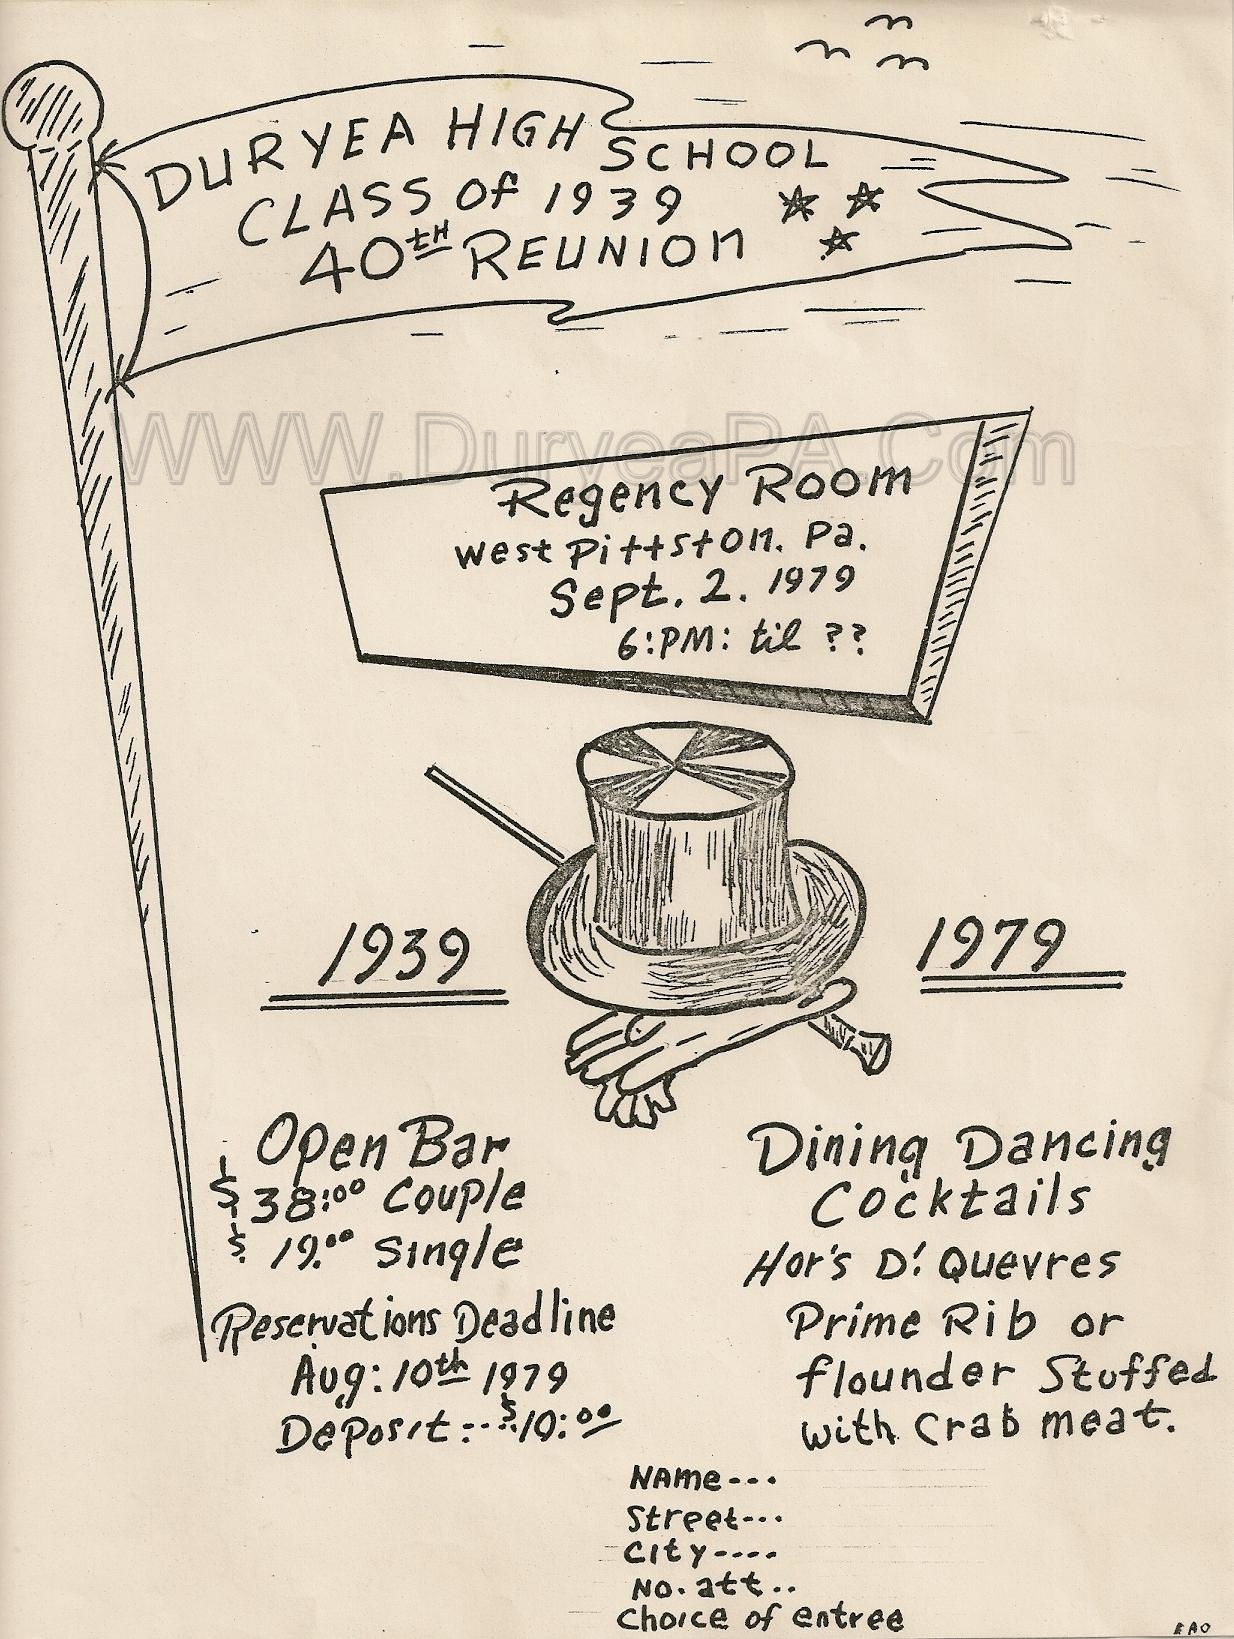 DURYEA HIGH SCHOOL
CLASS Of 1939
40tH REUNION
WWW.DuryeaPA.Com
Regency Room
West Pittston. Pa.
Sept. 2. 1979
6:PM: til ??
1939
1979
Open Bar
$38:00 Couple
$19.00 Single
Reservations Deadline
Aug: 10th 1979
Deposit:--$10:00
Dining Dancing
Cocktails
Hor's D'. Quevres
Prime Rib or
flounder Stuffed
with Crab meat.
NAme---
Street---
City----
No. att..
Choice of entree
EAO